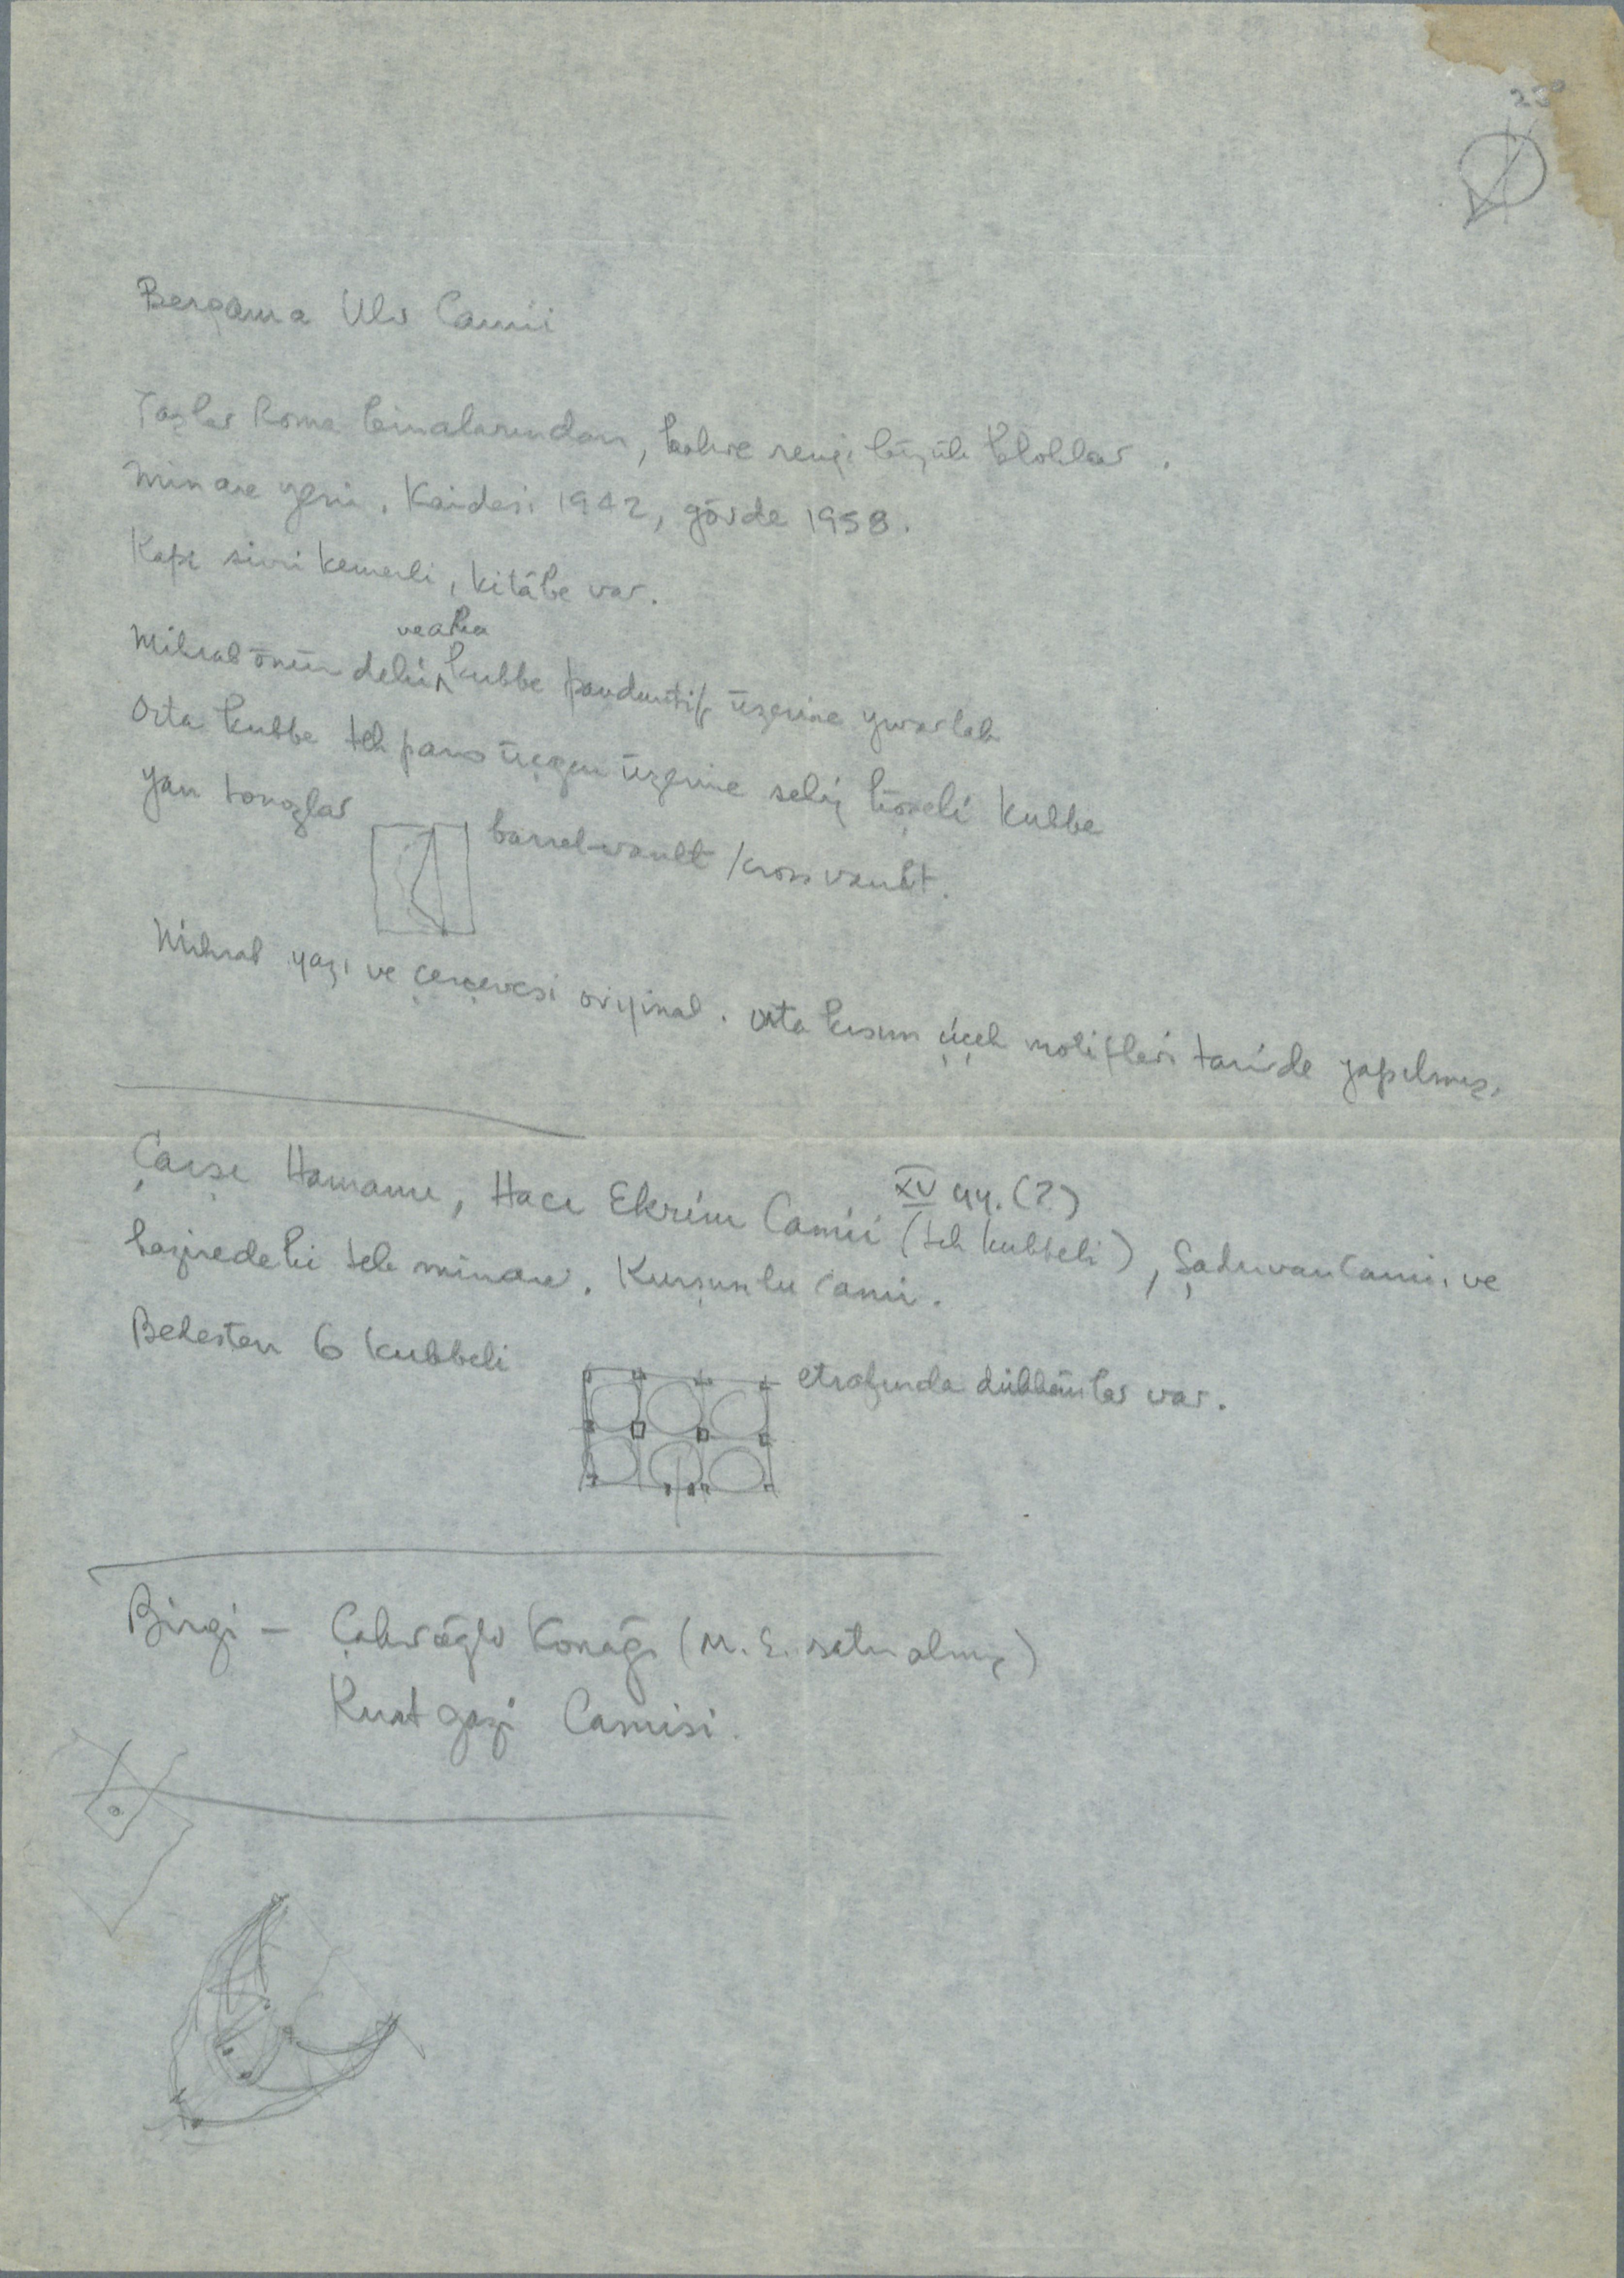 23°
Bergama Ulu Camii
Taşlar Roma binalarından, kahve rengi büyük bloklar.
Minare yeni. Kaidesi 1942, gövde 1958.
Kapı sivri kemerli, kitâbe var.
ve arka
Mihrab önündeki kubbe pandantif üzerine yuvarlak
Orta kubbe tek parça üçgen üzerine sekiz köşeli kubbe
Yan tonozlar barrel-vault / cross vault.
Mihrab yazı ve çerçevesi orijinal. Orta kısım çiçek motifleri tamirde yapılmış.
XV yy. (?)
Çarşı Hamamı, Hacı Ekrim Camii (tek kubbeli), Şadırvan Camii ve
haziredeki tek minare. Kurşunlu Camii.
Bedesten 6 kubbeli etrafında dükkânlar var.
Birgi – Çakıroğlu Konağı (M.E. satın almış)
Kurt gazi Camisi.